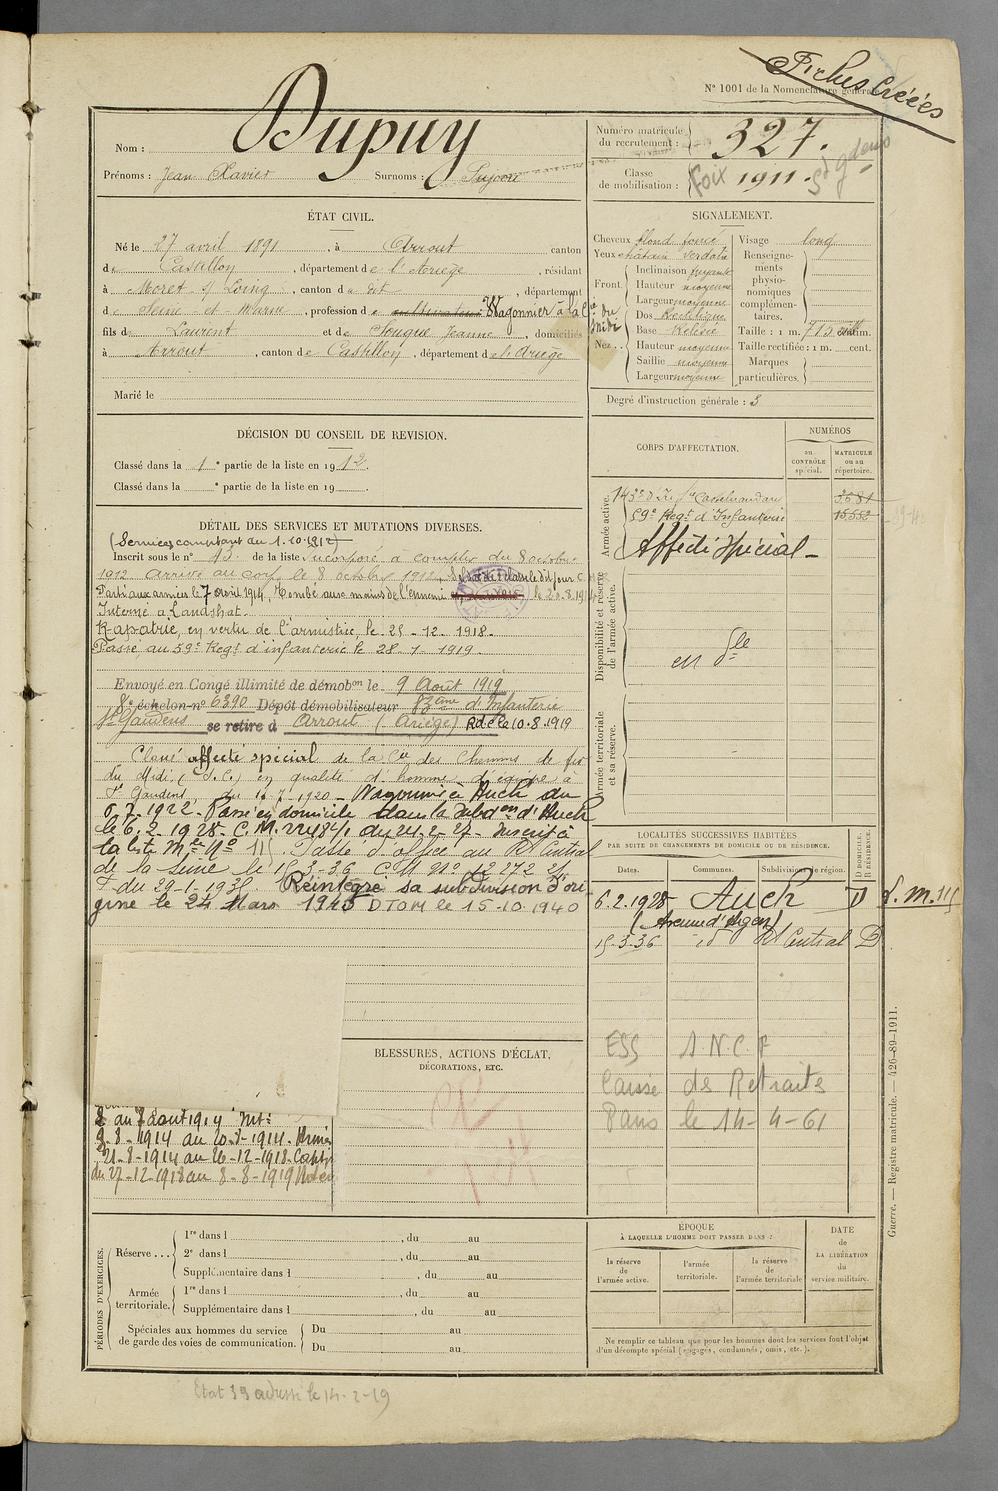 Fiches Créées
N° 1001 de la Nomenclature générale.
Nom : Dupuy
Prénoms : Jean Xavier Surnoms :
Numéro matricule du recrutement : 327.
Classe de mobilisation : Foix 1911. St Gdens
ÉTAT CIVIL.
Né le 27 avril 1891, à Arrout canton
de Castillon, département de l'Ariège, résidant
à Moret s/ Loing, canton de dit, département
de Seine et Marne, profession de cultivateur Wagonnier à la Cie du Midi
fils de Laurent et de Souque Jeanne, domiciliés
à Arrout, canton de Castillon, département de l'Ariège
Marié le
SIGNALEMENT.
Cheveux blond foncé
Yeux chatain verdatre
Front. Inclinaison fuyant
Hauteur moyenne
Largeur moyenne
Nez. Dos Rectiligne
Base Relevée
Hauteur moyenne
Saillie moyenne
Largeur moyenne
Visage long
Renseignements physionomiques complémentaires.
Taille : 1 m. 715 centim.
Taille rectifiée : 1 m. cent.
Marques particulières.
Degré d'instruction générale : 3
DÉCISION DU CONSEIL DE REVISION.
Classé dans la 1e partie de la liste en 1912.
Classé dans la e partie de la liste en 19
DÉTAIL DES SERVICES ET MUTATIONS DIVERSES.
(Services comptant du 1.10.1912)
Inscrit sous le n° 13 de la liste Incorporé à compter du 8 octobre
1912 arrivé au corps le 8 octobre 1912, Soldat de 1e classe le dit jour
Parti aux armées le 7 août 1914, Tombé aux mains de l'ennemi le 20.8.1914
Interné à Landshat.
Rapatrié, en vertu de l'armistice, le 25-12-1918.
Passé au 59e Regt d'infanterie le 28-1-1919.
Envoyé en Congé illimité de démobon le 9 Août 1919
8e échelon n° 6390 Dépôt démobilisateur 83ème d'Infanterie
St Gaudens se retire à Arrout (Ariège) RdC le 10.8.1919
Classé affecté spécial de la Cie des Chemins de fer
du Midi (S.C.) en qualité d'homme d'équipe à
St Gaudens, du 17-7-1920 - Wagonnier à Auch du
6-7-1922 - Passé en domicile dans la subdon d'Auch
le 6-2-1928 - C.M. 22484/1 du 24-2-27 - Inscrit à
la liste Mle N° 115. Passé d'office au Rt Central
de la Seine le 15-3-36 C.M. N° 12272 21/
1 du 29-1-1935. Réintègre sa subdivision d'ori
gine le 24 Mars 1940 DTOM le 15.10.1940
CORPS D'AFFECTATION.
NUMÉROS
au CONTRÔLE spécial.
MATRICULE ou au répertoire.
Armée active.
143e d'Inf ie Castelnaudary 3581
59e Regt d'Infanterie 15552
Affecté Spécial -
Disponibilité et réserve de l'armée active.
en dlle
Armée territoriale et sa réserve.
LOCALITÉS SUCCESSIVES HABITÉES
PAR SUITE DE CHANGEMENTS DE DOMICILE OU DE RÉSIDENCE.
Dates. Communes. Subdivision de région. D DOMICILE. R RÉSIDENCE.
6.2.1928 Auch D L.M. 115
(Avenue d'Agen)
15-3-36 id Rt Central D
ESS S.N.C.F
Caisse des Retraites
Paris le 14-4-61
BLESSURES, ACTIONS D'ÉCLAT,
DÉCORATIONS, ETC.
au 7 aout 1914 Int:
8-8-1914 au 20-8-1914. Armées
21-8-1914 au 26-12-1918. Captif
du 27-12-1918 au 8-8-1919 Intér
PÉRIODES D'EXERCICES.
Réserve... 1re dans l , du au
2e dans l , du au
Supplémentaire dans l , du au
Armée territoriale. 1re dans l , du au
Supplémentaire dans l , du au
Spéciales aux hommes du service de garde des voies de communication. Du au
Du au
ÉPOQUE
À LAQUELLE L'HOMME DOIT PASSER DANS :
la réserve de l'armée active.
l'armée territoriale.
la réserve de l'armée territoriale
DATE de LA LIBÉRATION du service militaire.
Ne remplir ce tableau que pour les hommes dont les services font l'objet
d'un décompte spécial (engagés, condamnés, omis, etc.).
Guerre. — Registre matricule. — 426-89-1911.
Etat 39 adressé le 14-2-19